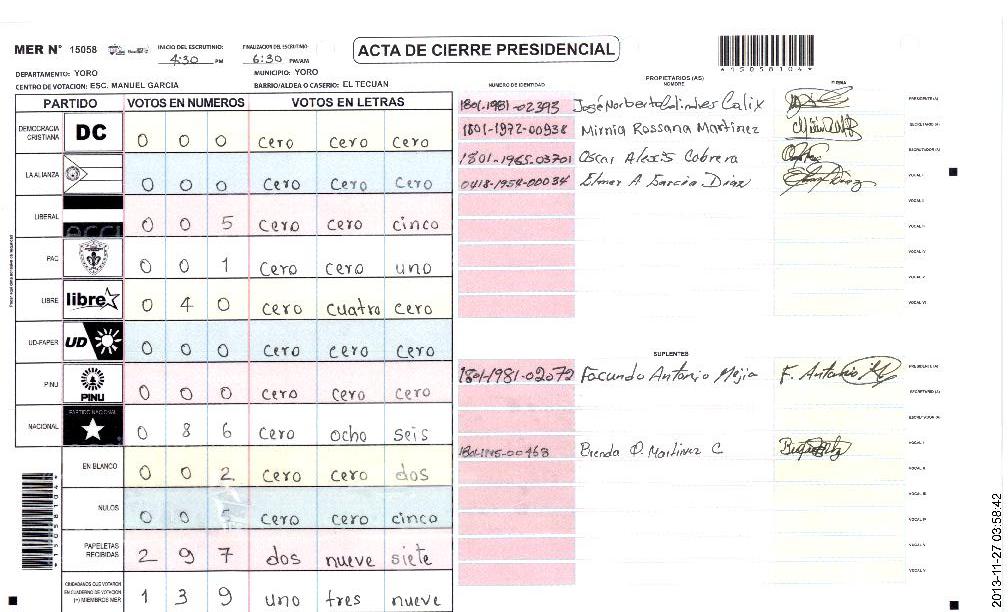 MER N° 15058
INICIO DEL ESCRUTINIO: 4:30 PM
FINALIZACION DEL ESCRUTINIO: 6:30 PM/AM
ACTA DE CIERRE PRESIDENCIAL
*15058104*
DEPARTAMENTO: YORO
MUNICIPIO: YORO
CENTRO DE VOTACION: ESC. MANUEL GARCIA
BARRIO/ALDEA O CASERIO: EL TECUAN
PARTIDO VOTOS EN NUMEROS VOTOS EN LETRAS
DEMOCRACIA CRISTIANA DC 0 0 0 cero cero cero
LA ALIANZA 0 0 0 cero cero cero
LIBERAL 0 0 5 cero cero cinco
PAC 0 0 1 cero cero uno
LIBRE libre 0 4 0 cero cuatro cero
UD-FAPER UD 0 0 0 cero cero cero
PINU PINU 0 0 0 cero cero cero
NACIONAL PARTIDO NACIONAL 0 8 6 cero ocho seis
EN BLANCO 0 0 2 cero cero dos
NULOS 0 0 5 cero cero cinco
PAPELETAS RECIBIDAS 2 9 7 dos nueve siete
CIUDADANOS QUE VOTARON EN CUADERNO DE VOTACION (+) MIEMBROS MER 1 3 9 uno tres nueve
PROPIETARIOS (AS)
NUMERO DE IDENTIDAD NOMBRE FIRMA
1801-1981-02393 José Norberto Calix PRESIDENTE (A)
1801-1972-00938 Mirnia Rossana Martinez SECRETARIO (A)
1801-1965-03701 Oscar Alexis Cobrera ESCRUTADOR (A)
0418-1954-00034 Elmer A Garcia Diaz VOCAL I
VOCAL II
VOCAL III
VOCAL IV
VOCAL V
VOCAL VI
SUPLENTES
1801-1981-02072 Facundo Antonio Mejia F. Antonio PRESIDENTE (A)
SECRETARIO (A)
ESCRUTADOR (A)
Brenda Martinez C VOCAL I
VOCAL II
VOCAL III
VOCAL IV
VOCAL V
VOCAL VI
*15058104*
2013-11-27 03:58:42